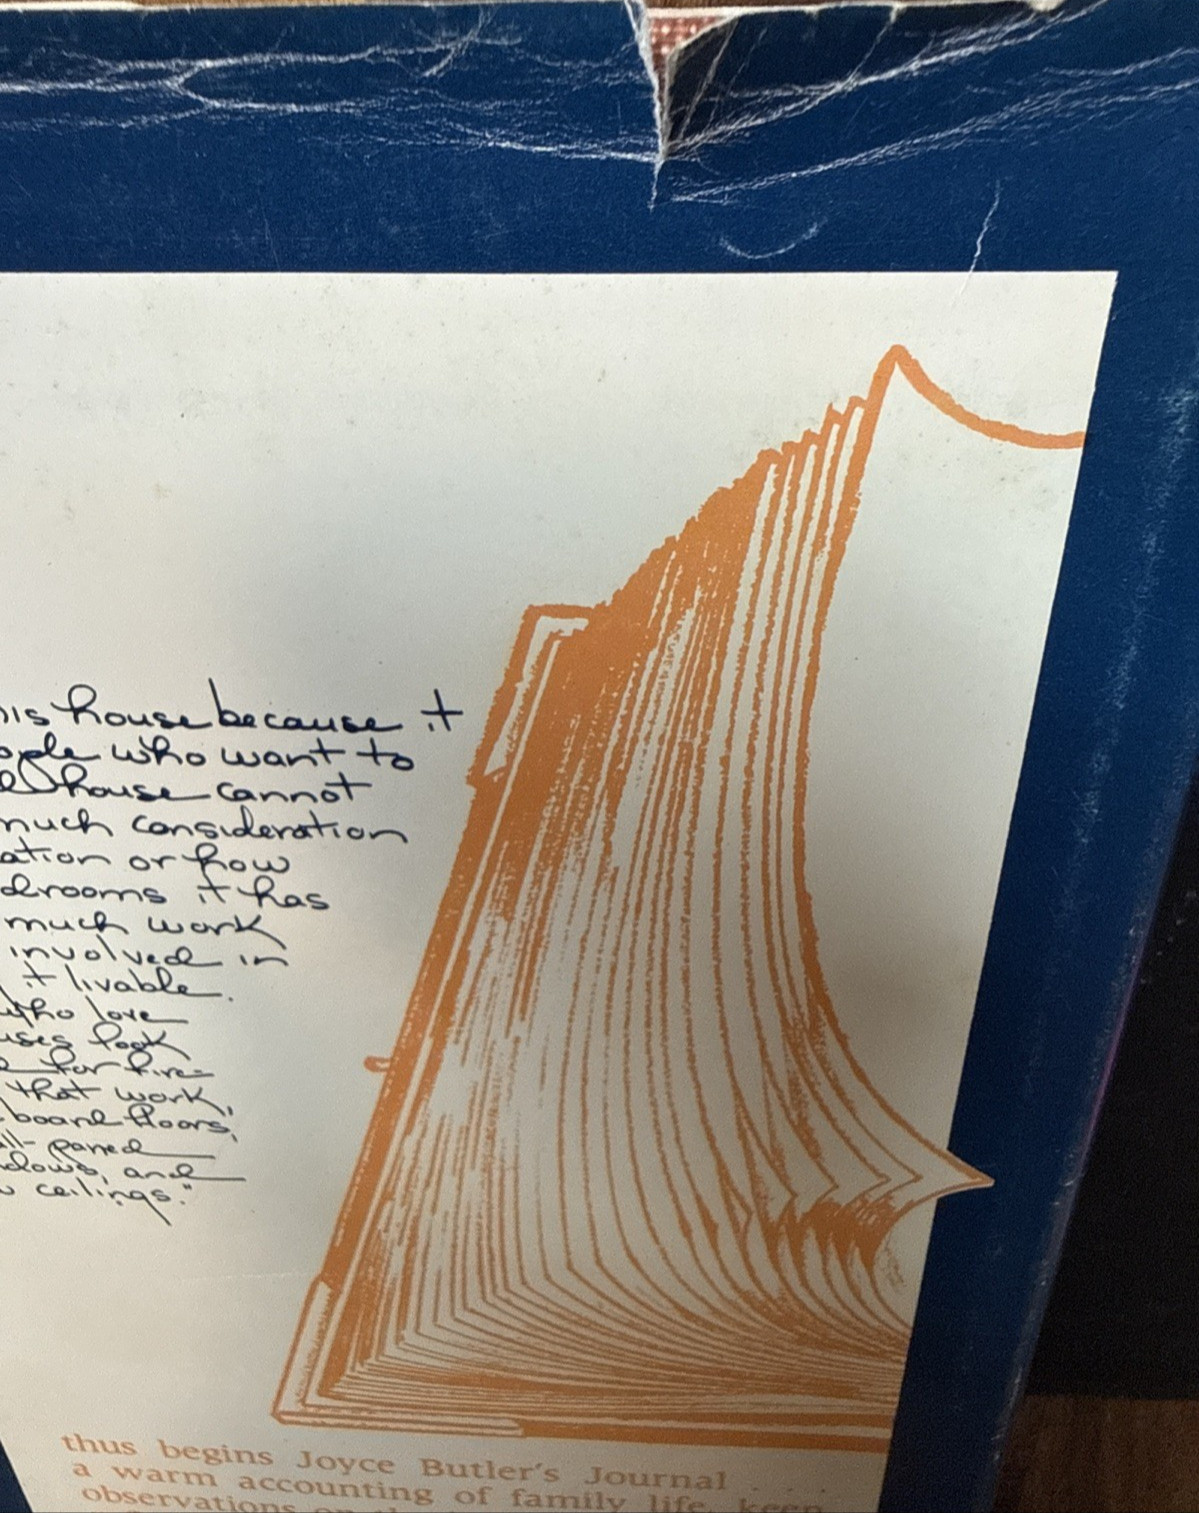 his house because it
ople who want to
house cannot
much consideration
ation or how
drooms it has
much work
involved in
it livable.
who love
uses look
for fire-
that work,
board floors,
all-paned
dows, and
ceilings."
thus begins Joyce Butler's Journal . . .
a warm accounting of family life, keen
observations on the